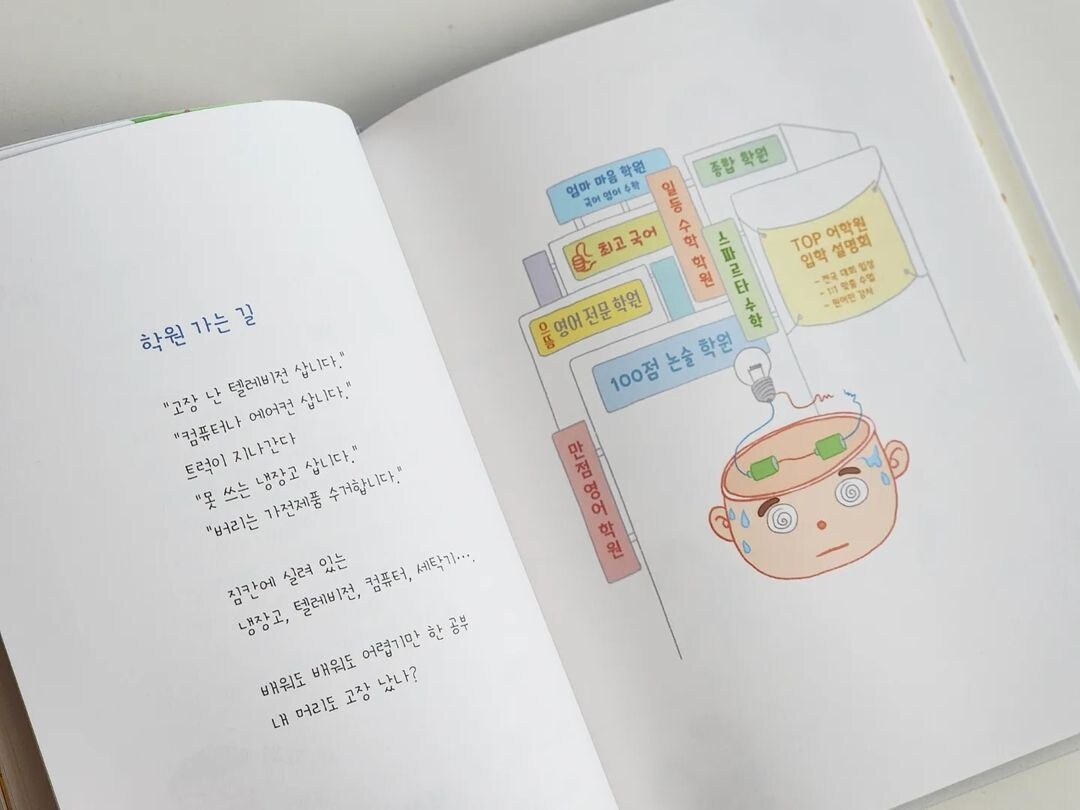 학원 가는 길
"고장 난 텔레비전 삽니다."
"컴퓨터나 에어컨 삽니다."
트럭이 지나간다
"못 쓰는 냉장고 삽니다."
"버리는 가전제품 수거합니다."
짐칸에 실려 있는
냉장고, 텔레비전, 컴퓨터, 세탁기….
배워도 배워도 어렵기만 한 공부
내 머리도 고장 났나?
엄마 마음 학원
국어 영어 수학
일등 수학 학원
종합 학원
최고 국어
스파르타 수학
TOP 어학원
입학 설명회
- 전국 대회 입상
- 1:1 맞춤 수업
- 원어민 강사
으뜸 영어 전문 학원
100점 논술 학원
만점 영어 학원